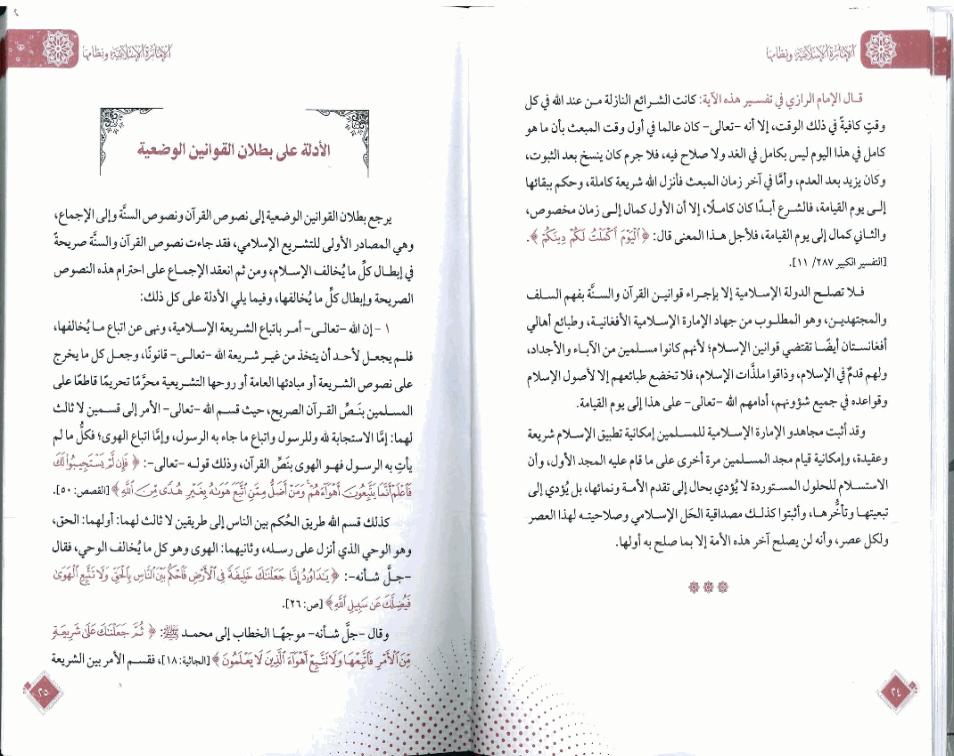 الإمارة الإسلامية ونظامها
قال الإمام الرازي في تفسير هذه الآية: كانت الشرائع النازلة من عند الله في كل
وقتٍ كافيةً في ذلك الوقت، إلا أنه -تعالى- كان عالما في أول وقت المبعث بأن ما هو
كامل في هذا اليوم ليس بكامل في الغد ولا صلاح فيه، فلا جرم كان ينسخ بعد الثبوت،
وكان يزيد بعد العدم، وأمَّا في آخر زمان المبعث فأنزل الله شريعة كاملة، وحكم ببقائها
إلى يوم القيامة، فالشرع أبدًا كان كاملًا، إلا أن الأول كمال إلى زمان مخصوص،
والثاني كمال إلى يوم القيامة، فلأجل هذا المعنى قال: ﴿ ٱلۡيَوۡمَ أَكۡمَلۡتُ لَكُمۡ دِينَكُمۡ ﴾.
[التفسير الكبير ٢٨٧/ ١١].
فلا تصلح الدولة الإسلامية إلا بإجراء قوانين القرآن والسنَّة بفهم السلف
والمجتهدين، وهو المطلوب من جهاد الإمارة الإسلامية الأفغانية، وطبائع أهالي
أفغانستان أيضًا تقتضي قوانين الإسلام؛ لأنهم كانوا مسلمين من الآباء والأجداد،
ولهم قدمٌ في الإسلام، وذاقوا ملذَّات الإسلام، فلا تخضع طبائعهم إلا لأصول الإسلام
وقواعده في جميع شؤونهم، أدامهم الله -تعالى- على هذا إلى يوم القيامة.
وقد أثبت مجاهدو الإمارة الإسلامية للمسلمين إمكانية تطبيق الإسلام شريعة
وعقيدة، وإمكانية قيام مجد المسلمين مرة أخرى على ما قام عليه المجد الأول، وأن
الاستسلام للحلول المستوردة لا يُؤدي بحال إلى تقدم الأمة ونمائها، بل يُؤدي إلى
تبعيتها وتأخُّرها، وأثبتوا كذلك مصداقية الحَل الإسلامي وصلاحيته لهذا العصر
ولكل عصر، وأنه لن يصلح آخر هذه الأمة إلا بما صلح به أولها.
٢٤
الإمارة الإسلامية ونظامها
الأدلة على بطلان القوانين الوضعية
يرجع بطلان القوانين الوضعية إلى نصوص القرآن ونصوص السنَّة وإلى الإجماع،
وهي المصادر الأولى للتشريع الإسلامي، فقد جاءت نصوص القرآن والسنَّة صريحةً
في إبطال كلِّ ما يُخالف الإسلام، ومن ثم انعقد الإجماع على احترام هذه النصوص
الصريحة وإبطال كلِّ ما يُخالفها، وفيما يلي الأدلة على كل ذلك:
١ - إن الله -تعالى- أمر باتباع الشريعة الإسلامية، ونهى عن اتباع ما يُخالفها،
فلم يجعل لأحد أن يتخذ من غير شريعة الله -تعالى- قانونًا، وجعل كل ما يخرج
على نصوص الشريعة أو مبادئها العامة أو روحها التشريعية محرَّمًا تحريمًا قاطعًا على
المسلمين بنَصِّ القرآن الصريح، حيث قسم الله -تعالى- الأمر إلى قسمين لا ثالث
لهما: إمَّا الاستجابة لله وللرسول واتباع ما جاء به الرسول، وإمَّا اتباع الهوى؛ فكلُّ ما لم
يأتِ به الرسول فهو الهوى بنَصِّ القرآن، وذلك قوله -تعالى-: ﴿ فَإِن لَّمۡ يَسۡتَجِيبُواْ لَكَ
فَٱعۡلَمۡ أَنَّمَا يَتَّبِعُونَ أَهۡوَآءَهُمۡۚ وَمَنۡ أَضَلُّ مِمَّنِ ٱتَّبَعَ هَوَىٰهُ بِغَيۡرِ هُدٗى مِّنَ ٱللَّهِ ﴾ [القصص: ٥٠].
كذلك قسم الله طريق الحُكم بين الناس إلى طريقين لا ثالث لهما: أولهما: الحق،
وهو الوحي الذي أنزل على رسله، وثانيهما: الهوى وهو كل ما يُخالف الوحي، فقال
-جلَّ شأنه-: ﴿ يَٰدَاوُۥدُ إِنَّا جَعَلۡنَٰكَ خَلِيفَةٗ فِي ٱلۡأَرۡضِ فَٱحۡكُم بَيۡنَ ٱلنَّاسِ بِٱلۡحَقِّ وَلَا تَتَّبِعِ ٱلۡهَوَىٰ
فَيُضِلَّكَ عَن سَبِيلِ ٱللَّهِ ﴾ [ص: ٢٦].
وقال -جلَّ شأنه- موجهًا الخطاب إلى محمد ﷺ: ﴿ ثُمَّ جَعَلۡنَٰكَ عَلَىٰ شَرِيعَةٖ
مِّنَ ٱلۡأَمۡرِ فَٱتَّبِعۡهَا وَلَا تَتَّبِعۡ أَهۡوَآءَ ٱلَّذِينَ لَا يَعۡلَمُونَ ﴾ [الجاثية: ١٨]، فقسم الأمر بين الشريعة
٢٥